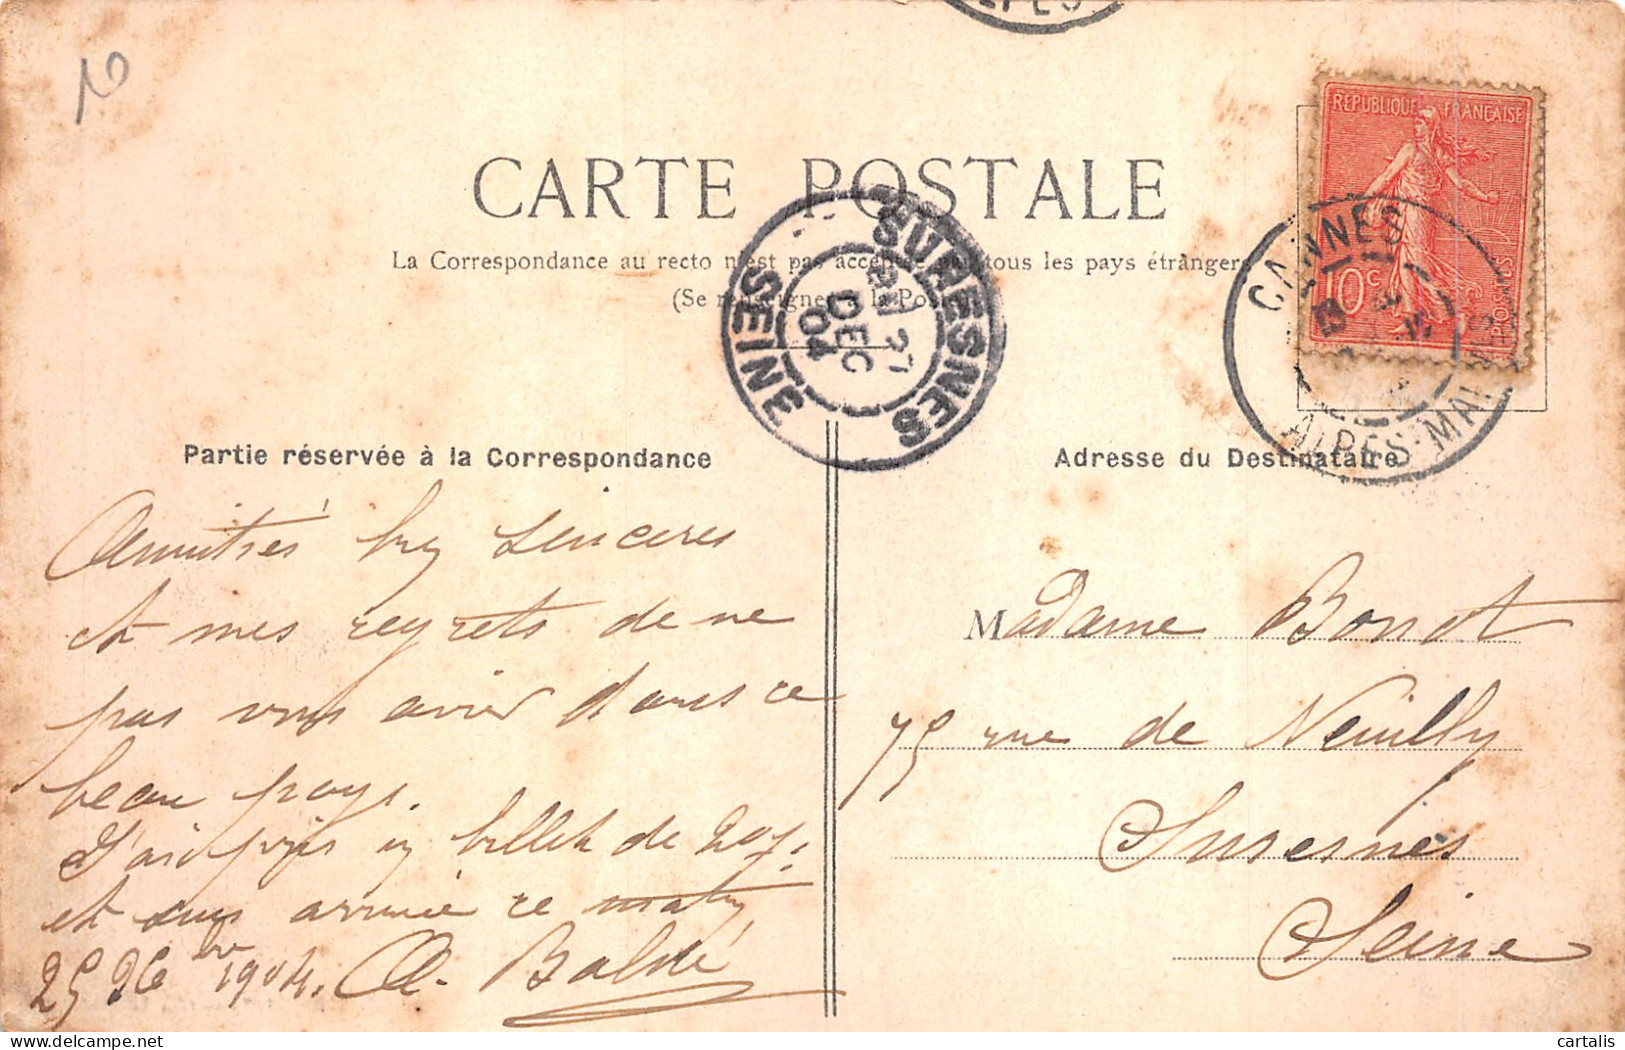 10
CARTE POSTALE
La Correspondance au recto n'est pas acceptée par tous les pays étrangers
(Se renseigner à la Poste)
REPUBLIQUE FRANÇAISE
10c
POSTES
CANNES
ALPES-MARITIMES
SURESNES
27
DEC
04
SEINE
Partie réservée à la Correspondance
Adresse du Destinataire
Amitiés bien sincères
et mes regrets de ne
pas vous avoir dans ce
beau pays.
J'ai pris un billet de 20 j.
et suis arrivée ce matin
25 Xbre 1904. A.
Madame Bonot
75 rue de Neuilly
Suresnes
Seine
delcampe.net
cartalis